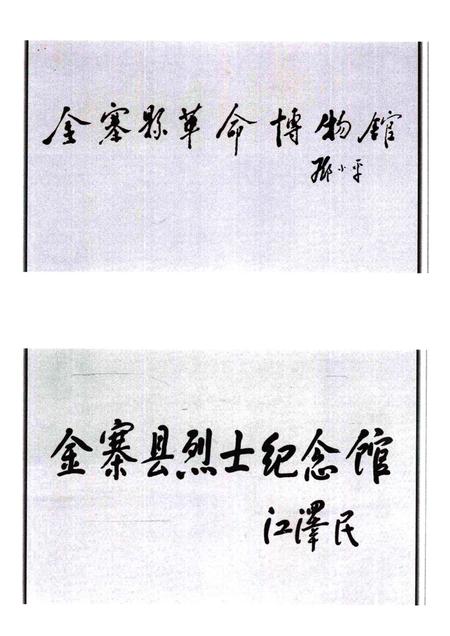 金寨縣革命博物館
鄧小平
金寨县烈士纪念馆
江澤民